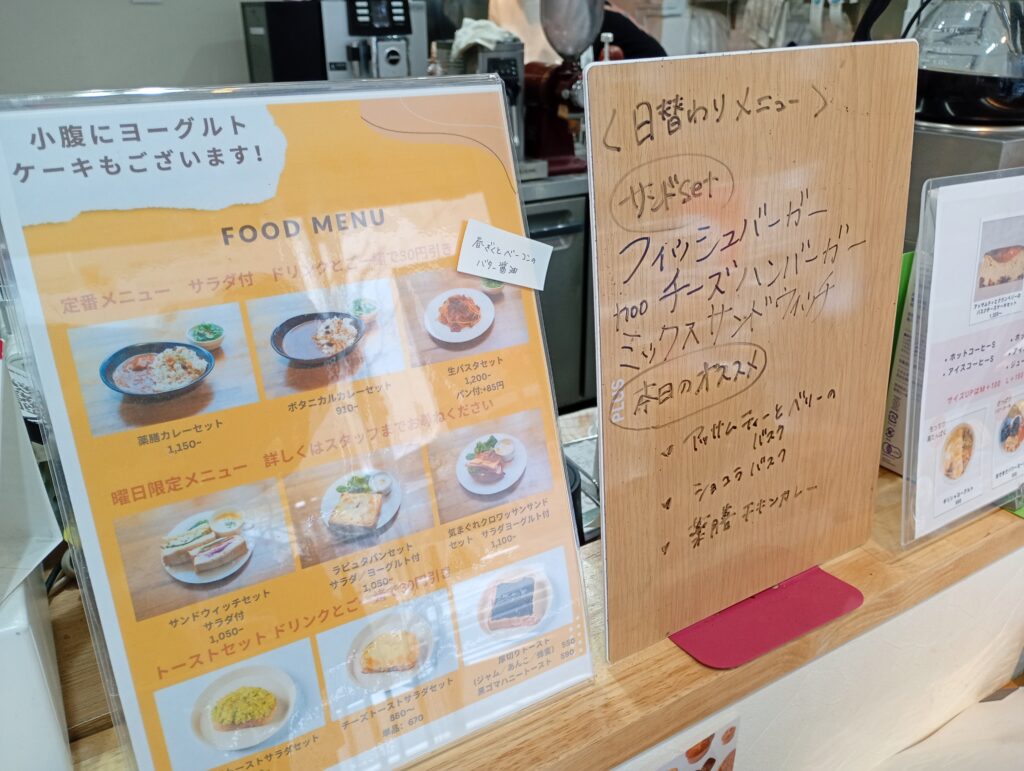 小腹にヨーグルト
ケーキもございます!
FOOD MENU
定番メニュー サラダ付 ドリンクとご一緒で80円引き
ベーコンの
バター醤油
薬膳カレーセット
1,150~
ボタニカルカレーセット
910~
生パスタセット
1,200~
パン付:+85円
曜日限定メニュー 詳しくはスタッフまでお尋ねください
サンドウィッチセット
サラダ付
1,050~
ラピュタパンセット
サラダ/ヨーグルト付
1,050~
気まぐれクロワッサンサンド
セット サラダヨーグルト付
1,100~
トーストセット ドリンクとご
円引き
トーストサラダセット
チーズトーストサラダセット
880~
単品: 670
厚切りトースト 550
(ジャム/あんこ/蜂蜜)
黒ゴマハニートースト 590
〈日替わりメニュー〉
サンドset
フィッシュバーガー
チーズハンバーガー
ミックスサンドウィッチ
PLUS
本日のオススメ
アッサムティーとベリーの
バスク
ショコラバスク
薬膳チキンカレー
・ホットコーヒーS
・アイスコーヒーS